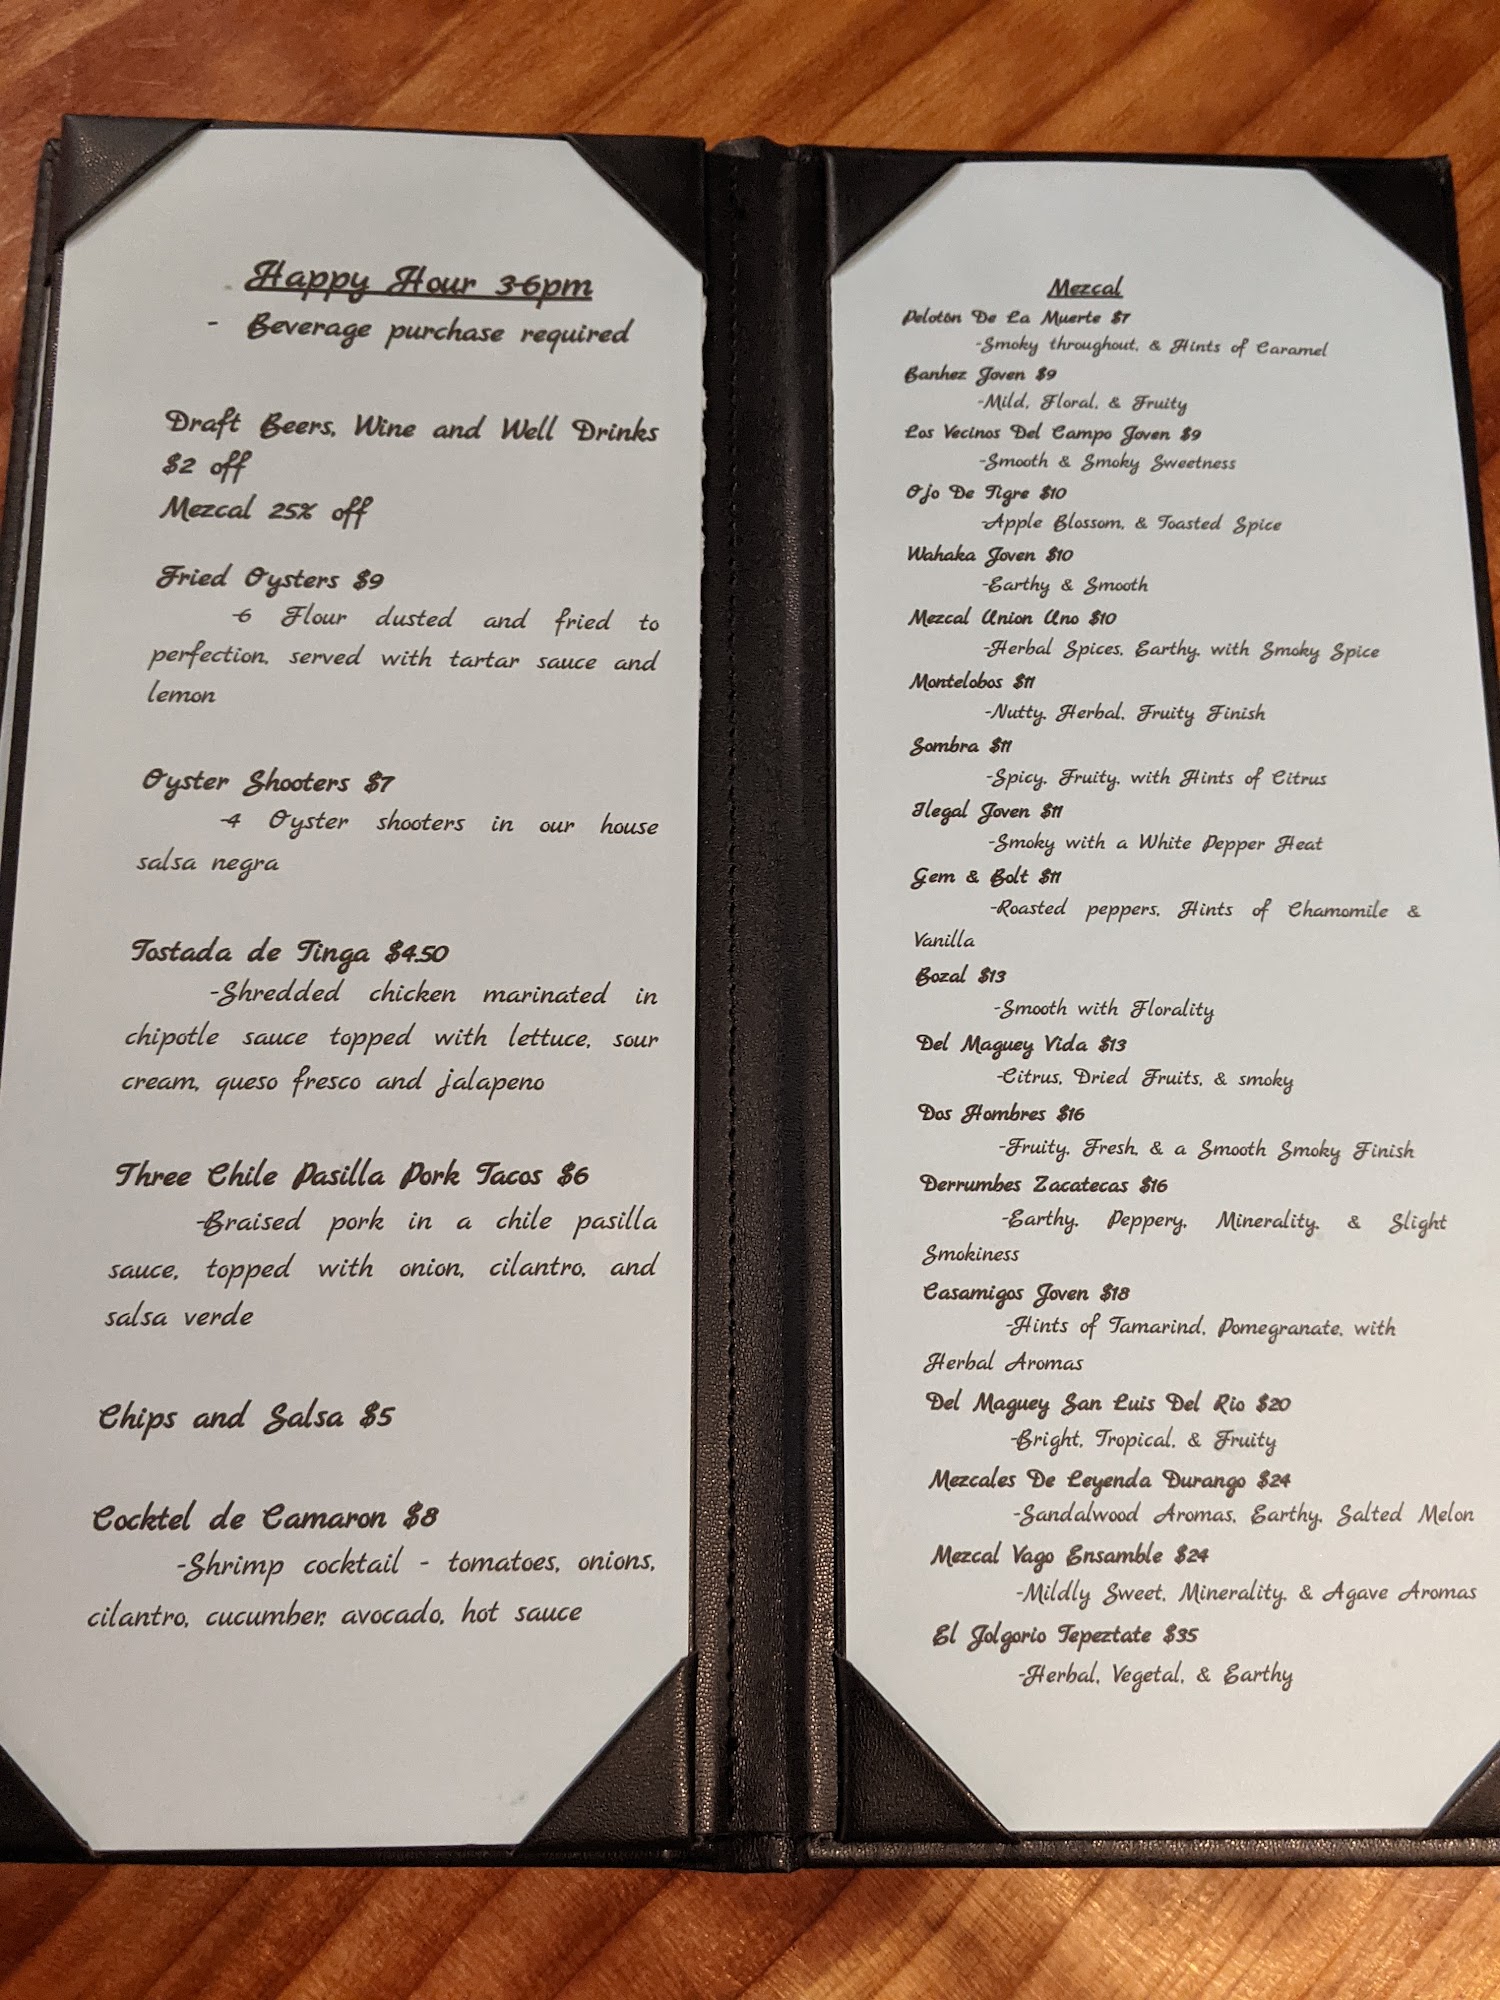 Happy Hour 3-6pm
- Beverage purchase required
Draft Beers, Wine and Well Drinks
$2 off
Mezcal 25% off
Fried Oysters $9
-6 Flour dusted and fried to
perfection, served with tartar sauce and
lemon
Oyster Shooters $7
-4 Oyster shooters in our house
salsa negra
Tostada de Tinga $4.50
-Shredded chicken marinated in
chipotle sauce topped with lettuce, sour
cream, queso fresco and jalapeno
Three Chile Pasilla Pork Tacos $6
-Braised pork in a chile pasilla
sauce, topped with onion, cilantro, and
salsa verde
Chips and Salsa $5
Cocktel de Camaron $8
-Shrimp cocktail - tomatoes, onions,
cilantro, cucumber, avocado, hot sauce
Mezcal
Peloton De La Muerte $7
-Smoky throughout, & Hints of Caramel
Banhez Joven $9
-Mild, Floral, & Fruity
Los Vecinos Del Campo Joven $9
-Smooth & Smoky Sweetness
Ojo De Tigre $10
-Apple Blossom, & Toasted Spice
Wahaka Joven $10
-Earthy & Smooth
Mezcal Union Uno $10
-Herbal Spices, Earthy, with Smoky Spice
Montelobos $11
-Nutty, Herbal, Fruity Finish
Sombra $11
-Spicy, Fruity, with Hints of Citrus
Ilegal Joven $11
-Smoky with a White Pepper Heat
Gem & Bolt $11
-Roasted peppers, Hints of Chamomile &
Vanilla
Bozal $13
-Smooth with Florality
Del Maguey Vida $13
-Citrus, Dried Fruits, & smoky
Dos Hombres $16
-Fruity, Fresh, & a Smooth Smoky Finish
Derrumbes Zacatecas $16
-Earthy, Peppery, Minerality, & Slight
Smokiness
Casamigos Joven $18
-Hints of Tamarind, Pomegranate, with
Herbal Aromas
Del Maguey San Luis Del Rio $20
-Bright, Tropical, & Fruity
Mezcales De Leyenda Durango $24
-Sandalwood Aromas, Earthy, Salted Melon
Mezcal Vago Ensamble $24
-Mildly Sweet, Minerality, & Agave Aromas
El Jolgorio Tepeztate $35
-Herbal, Vegetal, & Earthy